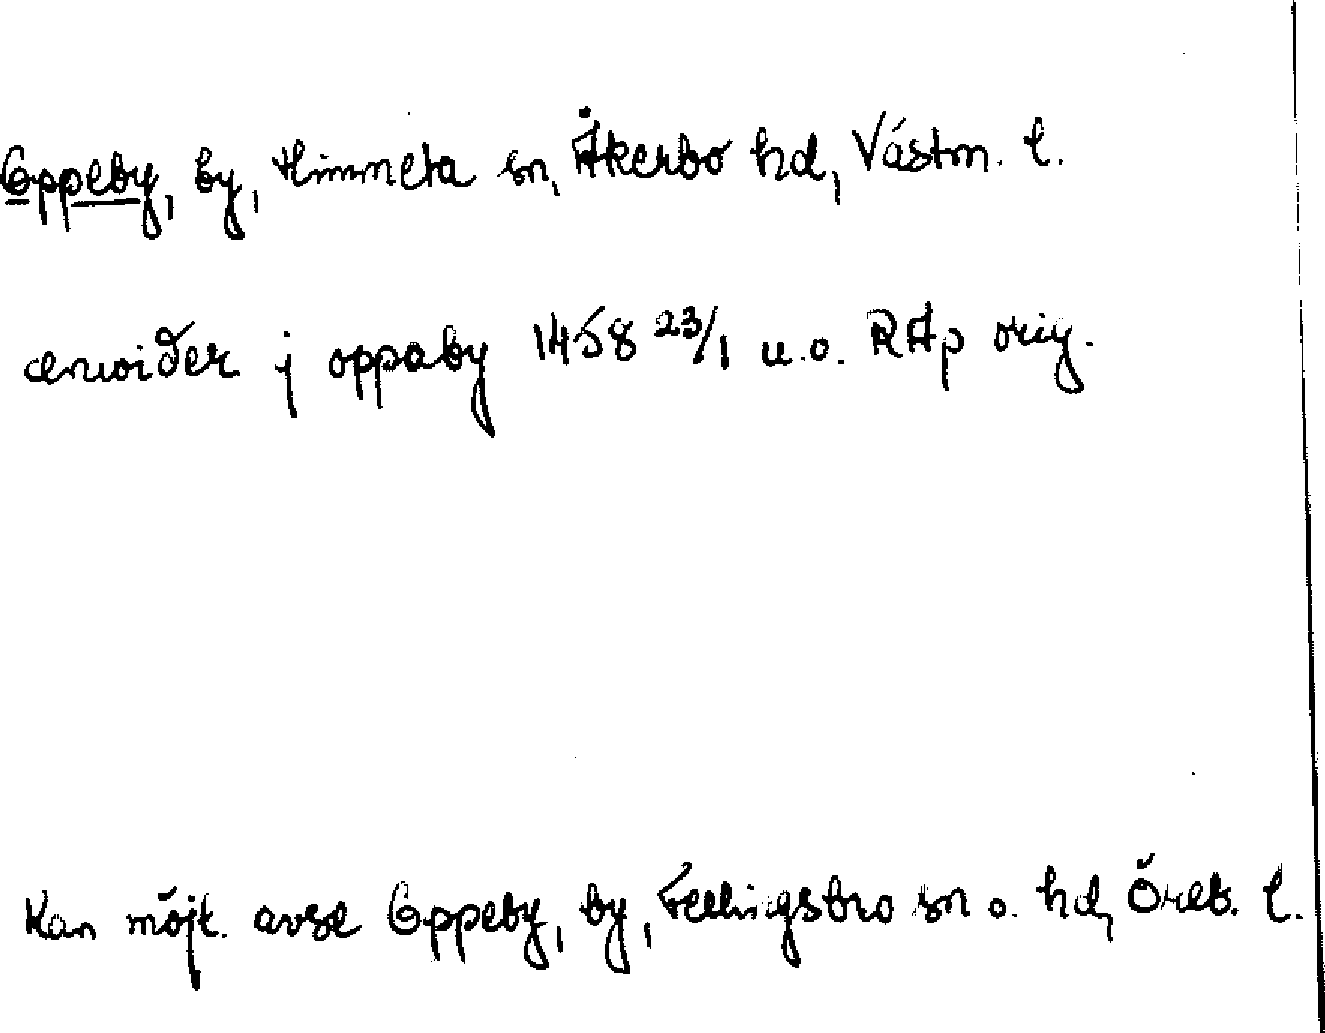 Oppeby, by, Himmeta sn, Åkerbo hd, Västm. l.
ærwider j oppaby 1458 23/1 u.o. RAp orig.
Kan möjl. avse Oppeby, by, Fellingsbro sn o. hd, Öreb. l.